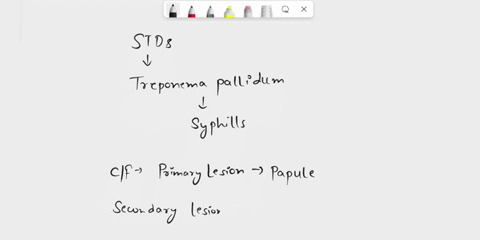 STDs
↓
Treponema pallidum
↓
Syphills
C/F → Primary Lesion → Papule
Secondary lesion